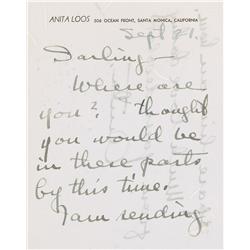 ANITA LOOS 506 OCEAN FRONT, SANTA MONICA, CALIFORNIA
Sept 21.
Darling —
Where are
you? I thought
you would be
in these parts
by this time.
I am sending